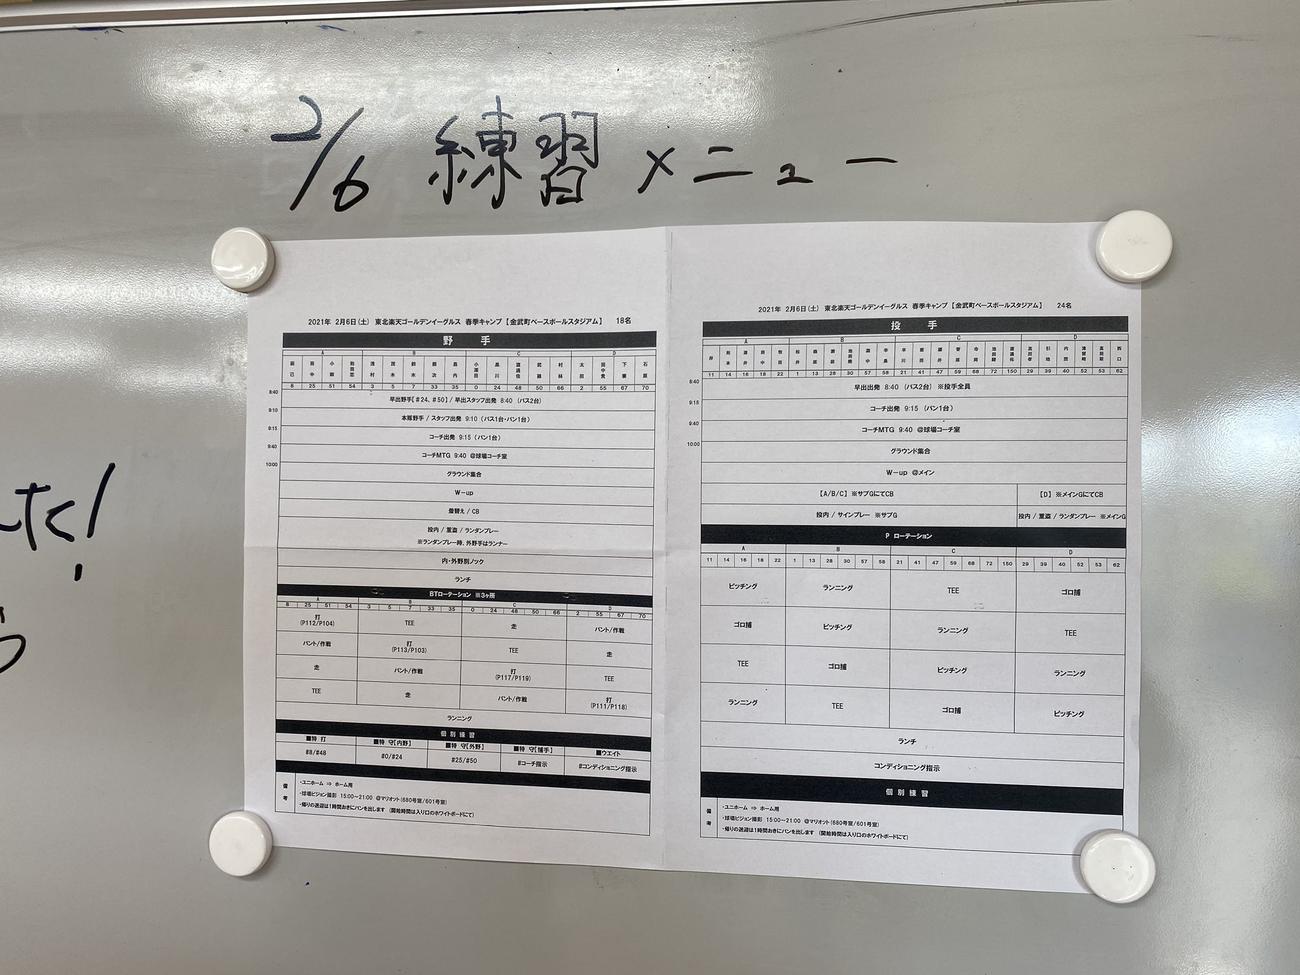 2/6 練習メニュー
2021年 2月6日(土) 東北楽天ゴールデンイーグルス 春季キャンプ【金武町ベースボールスタジアム】 18名
野 手
A B C D
8 25 51 54 3 5 7 33 35 0 24 48 50 66 2 55 67 70
8:40 早出野手【#24、#50】/ 早出スタッフ出発 8:40 (バス2台)
9:10 本隊野手 / スタッフ出発 9:10 (バス1台・バン1台)
9:15 コーチ出発 9:15 (バン1台)
9:40 コーチMTG 9:40 @球場コーチ室
10:00 グラウンド集合
W-up
着替え / CB
投内 / 重盗 / ランダンプレー
※ランダンプレー時、外野手はランナー
内・外野別ノック
ランチ
BTローテーション ※3ヶ所
A B C D
8 25 51 54 3 5 7 33 35 0 24 48 50 66 2 55 67 70
打 (P112/P104) TEE 走 バント/作戦
バント/作戦 打 (P113/P103) TEE 走
走 バント/作戦 打 (P117/P119) TEE
TEE 走 バント/作戦 打 (P111/P118)
ランニング
個別練習
■特 打 ■特 守【内野】 ■特 守【外野】 ■特 守【捕手】 ■ウエイト
#8/#48 #0/#24 #25/#50 #コーチ指示 #コンディショニング指示
備考
・ユニホーム ⇒ ホーム用
・球場ビジョン撮影 15:00~21:00 @マリオット(680号室/601号室)
・帰りの送迎は1時間おきにバンを出します (開始時間は入り口のホワイトボードにて)
2021年 2月6日(土) 東北楽天ゴールデンイーグルス 春季キャンプ【金武町ベースボールスタジアム】 24名
投 手
A B C D
11 14 16 18 22 1 13 28 30 57 58 21 41 47 59 68 72 150 29 39 40 52 53 62
8:40 早出出発 8:40 (バス2台) ※投手全員
9:15 コーチ出発 9:15 (バン1台)
9:40 コーチMTG 9:40 @球場コーチ室
10:00 グラウンド集合
W-up @メイン
【A/B/C】※サブGにてCB 【D】※メインGにてCB
投内 / サインプレー ※サブG 投内 / 重盗 / ランダンプレー ※メインG
P ローテーション
A B C D
11 14 16 18 22 1 13 28 30 57 58 21 41 47 59 68 72 150 29 39 40 52 53 62
ピッチング ランニング TEE ゴロ捕
ゴロ捕 ピッチング ランニング TEE
TEE ゴロ捕 ピッチング ランニング
ランニング TEE ゴロ捕 ピッチング
ランチ
コンディショニング指示
個別練習
備考
・ユニホーム ⇒ ホーム用
・球場ビジョン撮影 15:00~21:00 @マリオット(680号室/601号室)
・帰りの送迎は1時間おきにバンを出します (開始時間は入り口のホワイトボードにて)